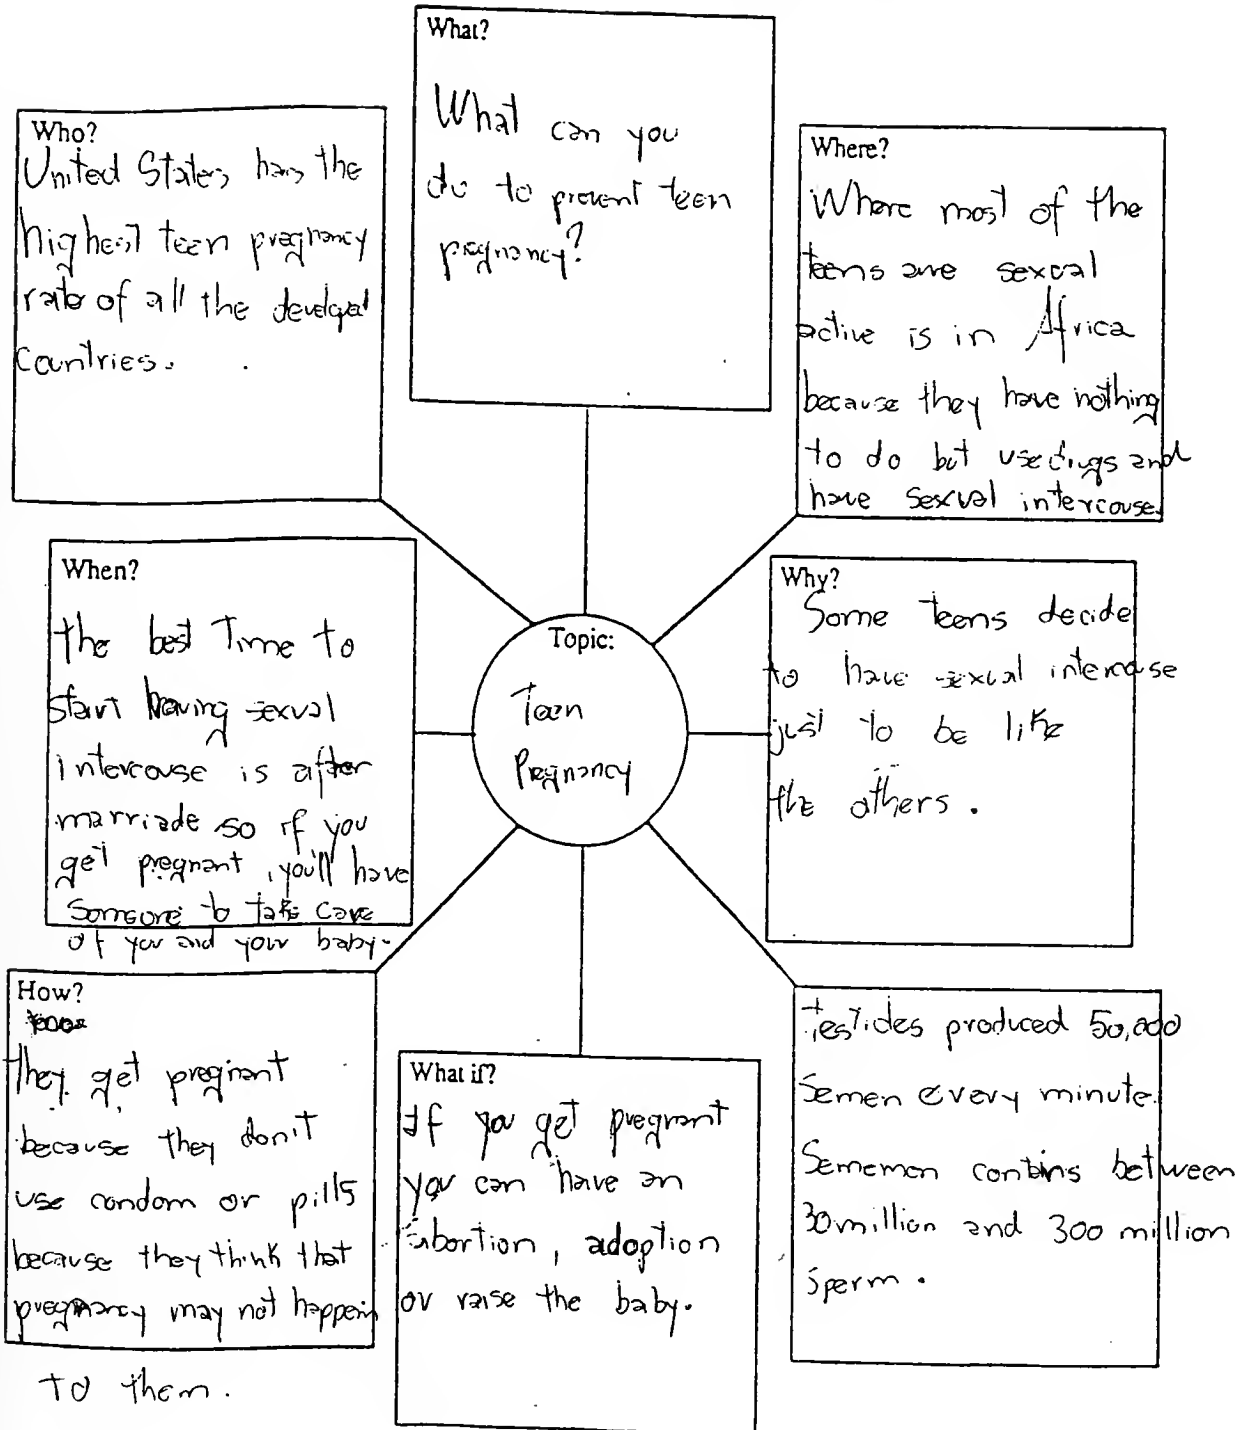 What?
What can you
do to prevent teen
pregnancy?
Who?
United States has the
highest teen pregnancy
rate of all the developed
countries.
Where?
Where most of the
teens are sexual
active is in Africa
because they have nothing
to do but use drugs and
have sexual intercouse.
When?
the best Time to
start having sexual
intercouse is after
marriade so if you
get pregnant, you'll have
someone to take care
of you and your baby.
Topic:
Teen
Pregnancy
Why?
Some teens decide
to have sexual intercouse
just to be like
the others.
How?
they get pregnant
because they don't
use condom or pills
because they think that
pregnancy may not happen
to them.
What if?
If you get pregnant
you can have an
abortion, adoption
or raise the baby.
Testicles produced 50,000
semen every minute.
Sememen contains between
30 million and 300 million
sperm.